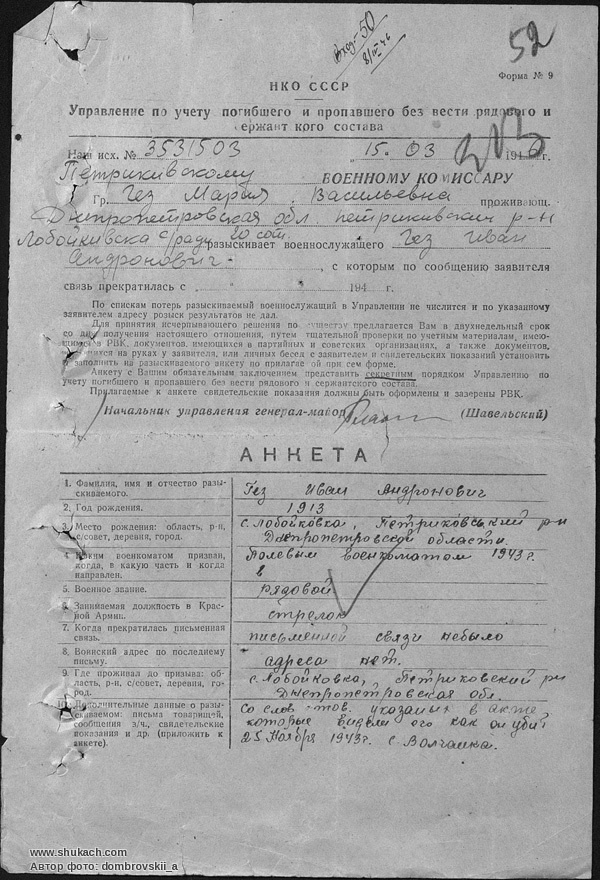 Вход-50
8/IV 46
52
Форма № 9
НКО СССР
Управление по учету погибшего и пропавшего без вести рядового и
сержант кого состава
Наш исх. № 3531503 „15“ 03 194 6 г.
Петрикивскому ВОЕННОМУ КОМИССАРУ
Гр. Гез Мария Васильевна проживающ.
Днепропетровская обл. петрикивский р-н
Лобойкивска с/раду 20 сот. разыскивает военнослужащего Гез Иван
Андронович , с которым по сообщению заявителя
связь прекратилась с „ “ 194 г.
По спискам потерь разыскиваемый военнослужащий в Управлении не числится и по указанному
заявителем адресу розыск результатов не дал.
Для принятия исчерпывающего решения по существу предлагается Вам в двухнедельный срок
со дня получения настоящего отношения, путем тщательной проверки по учетным материалам, имею-
щимся в РВК, документов, имеющихся в партийных и советских организациях, а также документов,
имеющихся на руках у заявителя, или личных бесед с заявителем и свидетельских показаний установить
и заполнить на разыскиваемого анкету по прилагае ой при сем форме.
Анкету с Вашим обязательным заключением представить секретным порядком Управлению по
учету погибшего и пропавшего без вести рядового и сержантского состава.
Прилагаемые к анкете свидетельские показания должны быть оформлены и заверены РВК.
Начальник управления генерал-майор (Шавельский)
АНКЕТА
1. Фамилия, имя и отчество разы-
скиваемого.
Гез Иван Андронович
2. Год рождения.
1913
3. Место рождения: область, р-н,
с/совет, деревня, город.
с. Лобойковка, Петриковський рн
Днепропетровской области.
4. Каким военкоматом призван,
когда, в какую часть и когда
направлен.
Полевым военкоматом 1943 г.
в
5. Военное звание.
рядовой
6. Занимаемая должность в Крас-
ной Армии.
стрелок
7. Когда прекратилась письменная
связь.
письменной связи небыло
8. Воинский адрес по последнему
письму.
адреса нет.
9. Где проживал до призыва: об-
ласть, р-н, с/совет, деревня, го-
род.
с. Лобойковка, Петриковский рн
Днепропетровская обл.
10. Дополнительные данные о разы-
скиваемом: письма товарищей,
сообщения з/ч., свидетельские
показания и др. (приложить к
анкете).
Со слов тов. указаных в акте
которые видели его как он убит
25 Ноября 1943 г. с. Волчанка.
www.shukach.com
Автор фото: dombrovskii_a